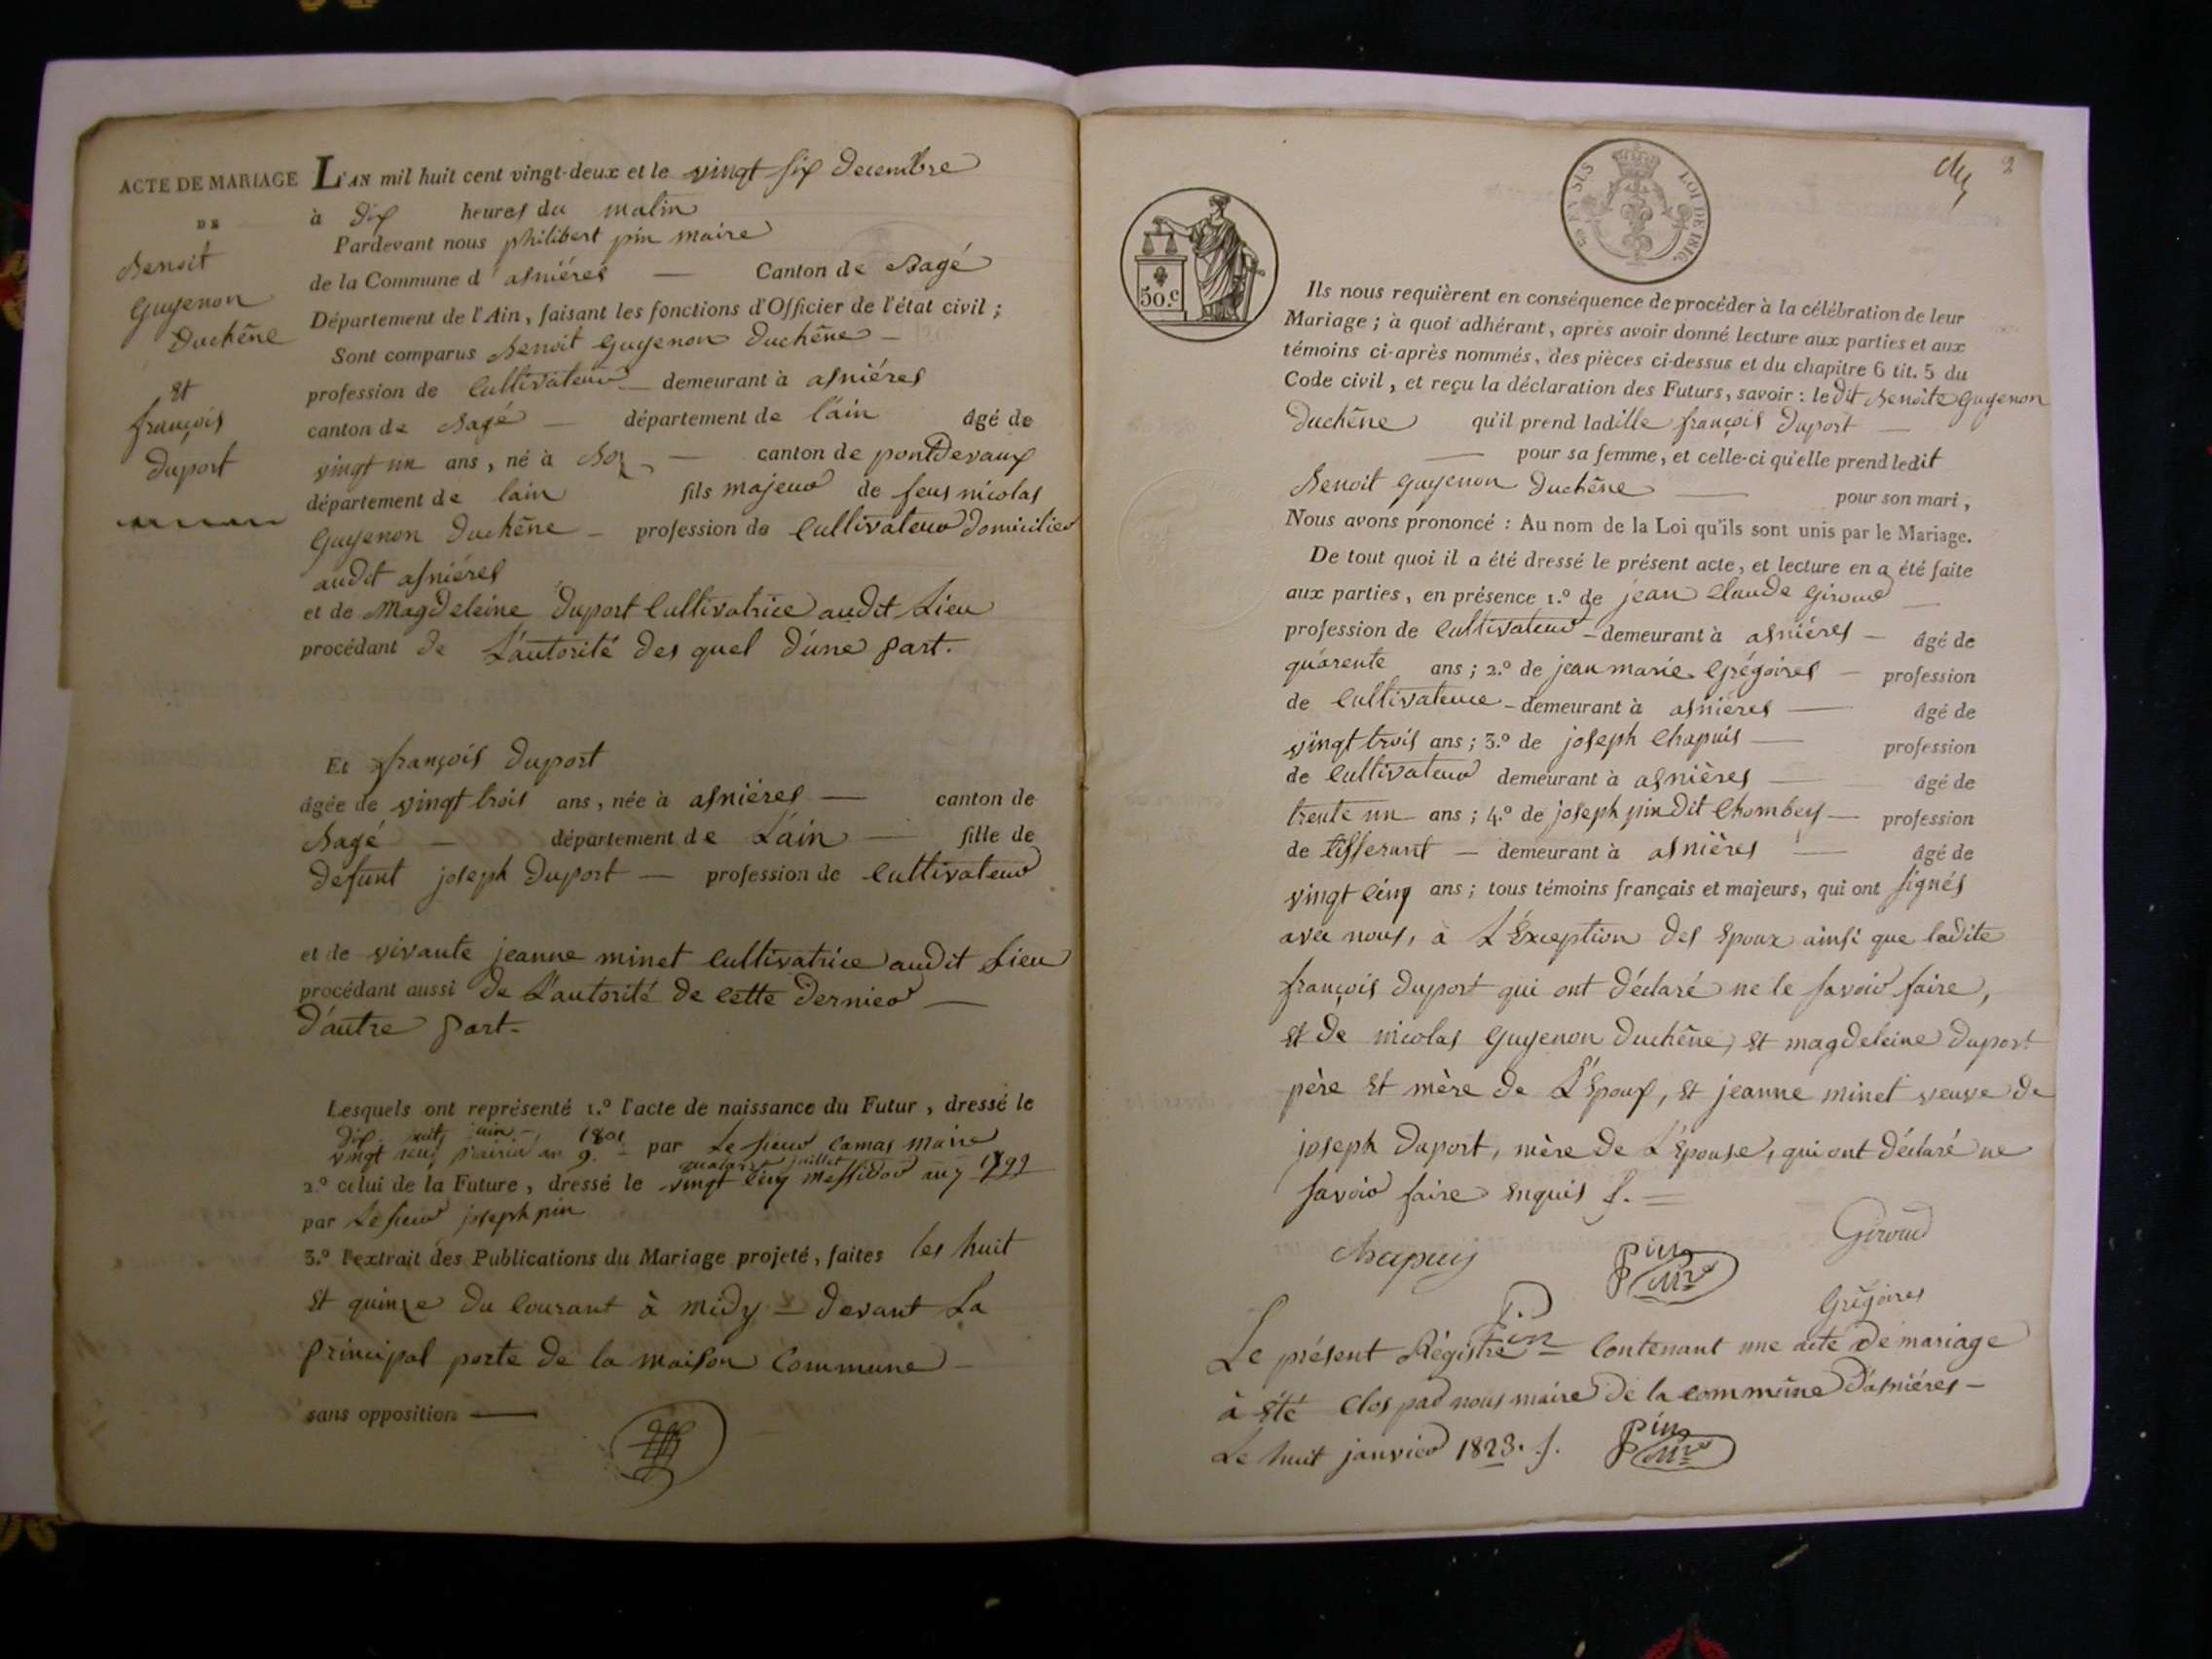 ACTE DE MARIAGE
DE
Benoit
Guyenon
Duchêne
et
françois
Duport
L'AN mil huit cent vingt-deux et le vingt six Decembre
à Dix heures du matin
Pardevant nous philibert pin maire
de la Commune d'asniéres — Canton de Bagé
Département de l'Ain, faisant les fonctions d'Officier de l'état civil ;
Sont comparus Benoit Guyenon Duchêne —
profession de Cultivateur — demeurant à asniéres
canton de Bagé — département de l'ain âgé de
vingt un ans, né à Boz — canton de pontdevaux
département de lain fils majeur de feus nicolas
Guyenon Duchêne — profession de Cultivateur Domicilier
audit asniéres
et de Magdeleine Duport Cultivatrice audit Lieu
procédant de L'autorité des quel d'une part.
Et françois Duport
âgée de vingt trois ans, née à asniéres — canton de
Bagé — département de L'ain — fille de
Defunt joseph Duport — profession de Cultivateur
et de vivante jeanne minet Cultivatrice audit Lieu
procédant aussi de L'autorité de cette Dernier —
D'autre part.
Lesquels ont représenté 1.º l'acte de naissance du Futur, dressé le
Dix huit juin 1801
vingt neuf Prairial an 9. par Le sieur Camas Maire
quatorze juillet
2.º celui de la Future, dressé le vingt Cinq Messidor an 7 1799
par Le sieur joseph pin
3.º l'extrait des Publications du Mariage projeté, faites les huit
et quinze du Courant à midy — Devant La
Principal porte de la maison Commune —
sans opposition —
2
LOI DE 1816.
50.c
Ils nous requièrent en conséquence de procéder à la célébration de leur
Mariage ; à quoi adhérant, après avoir donné lecture aux parties et aux
témoins ci-après nommés, des pièces ci-dessus et du chapitre 6 tit. 5 du
Code civil, et reçu la déclaration des Futurs, savoir : le dit Benoite Guyenon
Duchêne qu'il prend ladille françois Duport —
— pour sa femme, et celle-ci qu'elle prend ledit
Benoit Guyenon Duchêne — pour son mari,
Nous avons prononcé : Au nom de la Loi qu'ils sont unis par le Mariage.
De tout quoi il a été dressé le présent acte, et lecture en a été faite
aux parties, en présence 1.º de jean Claude Giroud —
profession de Cultivateur — demeurant à asniéres — âgé de
quarente ans ; 2.º de jean marie Grégoires — profession
de Cultivateur — demeurant à asniéres — âgé de
vingt trois ans ; 3.º de joseph Chapuis — profession
de Cultivateur demeurant à asnières — âgé de
trente un ans ; 4.º de joseph pin Dit Chombey — profession
de tisserant — demeurant à asnières — âgé de
vingt Cinq ans ; tous témoins français et majeurs, qui ont signés
avec nous, à L'Exception des Epoux ainsi que ladite
françois Duport qui ont Déclaré ne le savoir faire,
et de nicolas Guyenon Duchêne, et magdeleine Duport
père et mère de L'Epoux, et jeanne minet veuve de
joseph Duport, mère de L'Epouse, qui ont Déclaré ne
savoir faire Enquis f. —
Chapuis
Pin
Mre
Giroud
Grégoires
J. Pin
Le présent Régistre — Contenant une acte de mariage
à été Clos par nous maire de la commune D'asniéres —
Le huit janvier 1823. f.
Pin
Mre